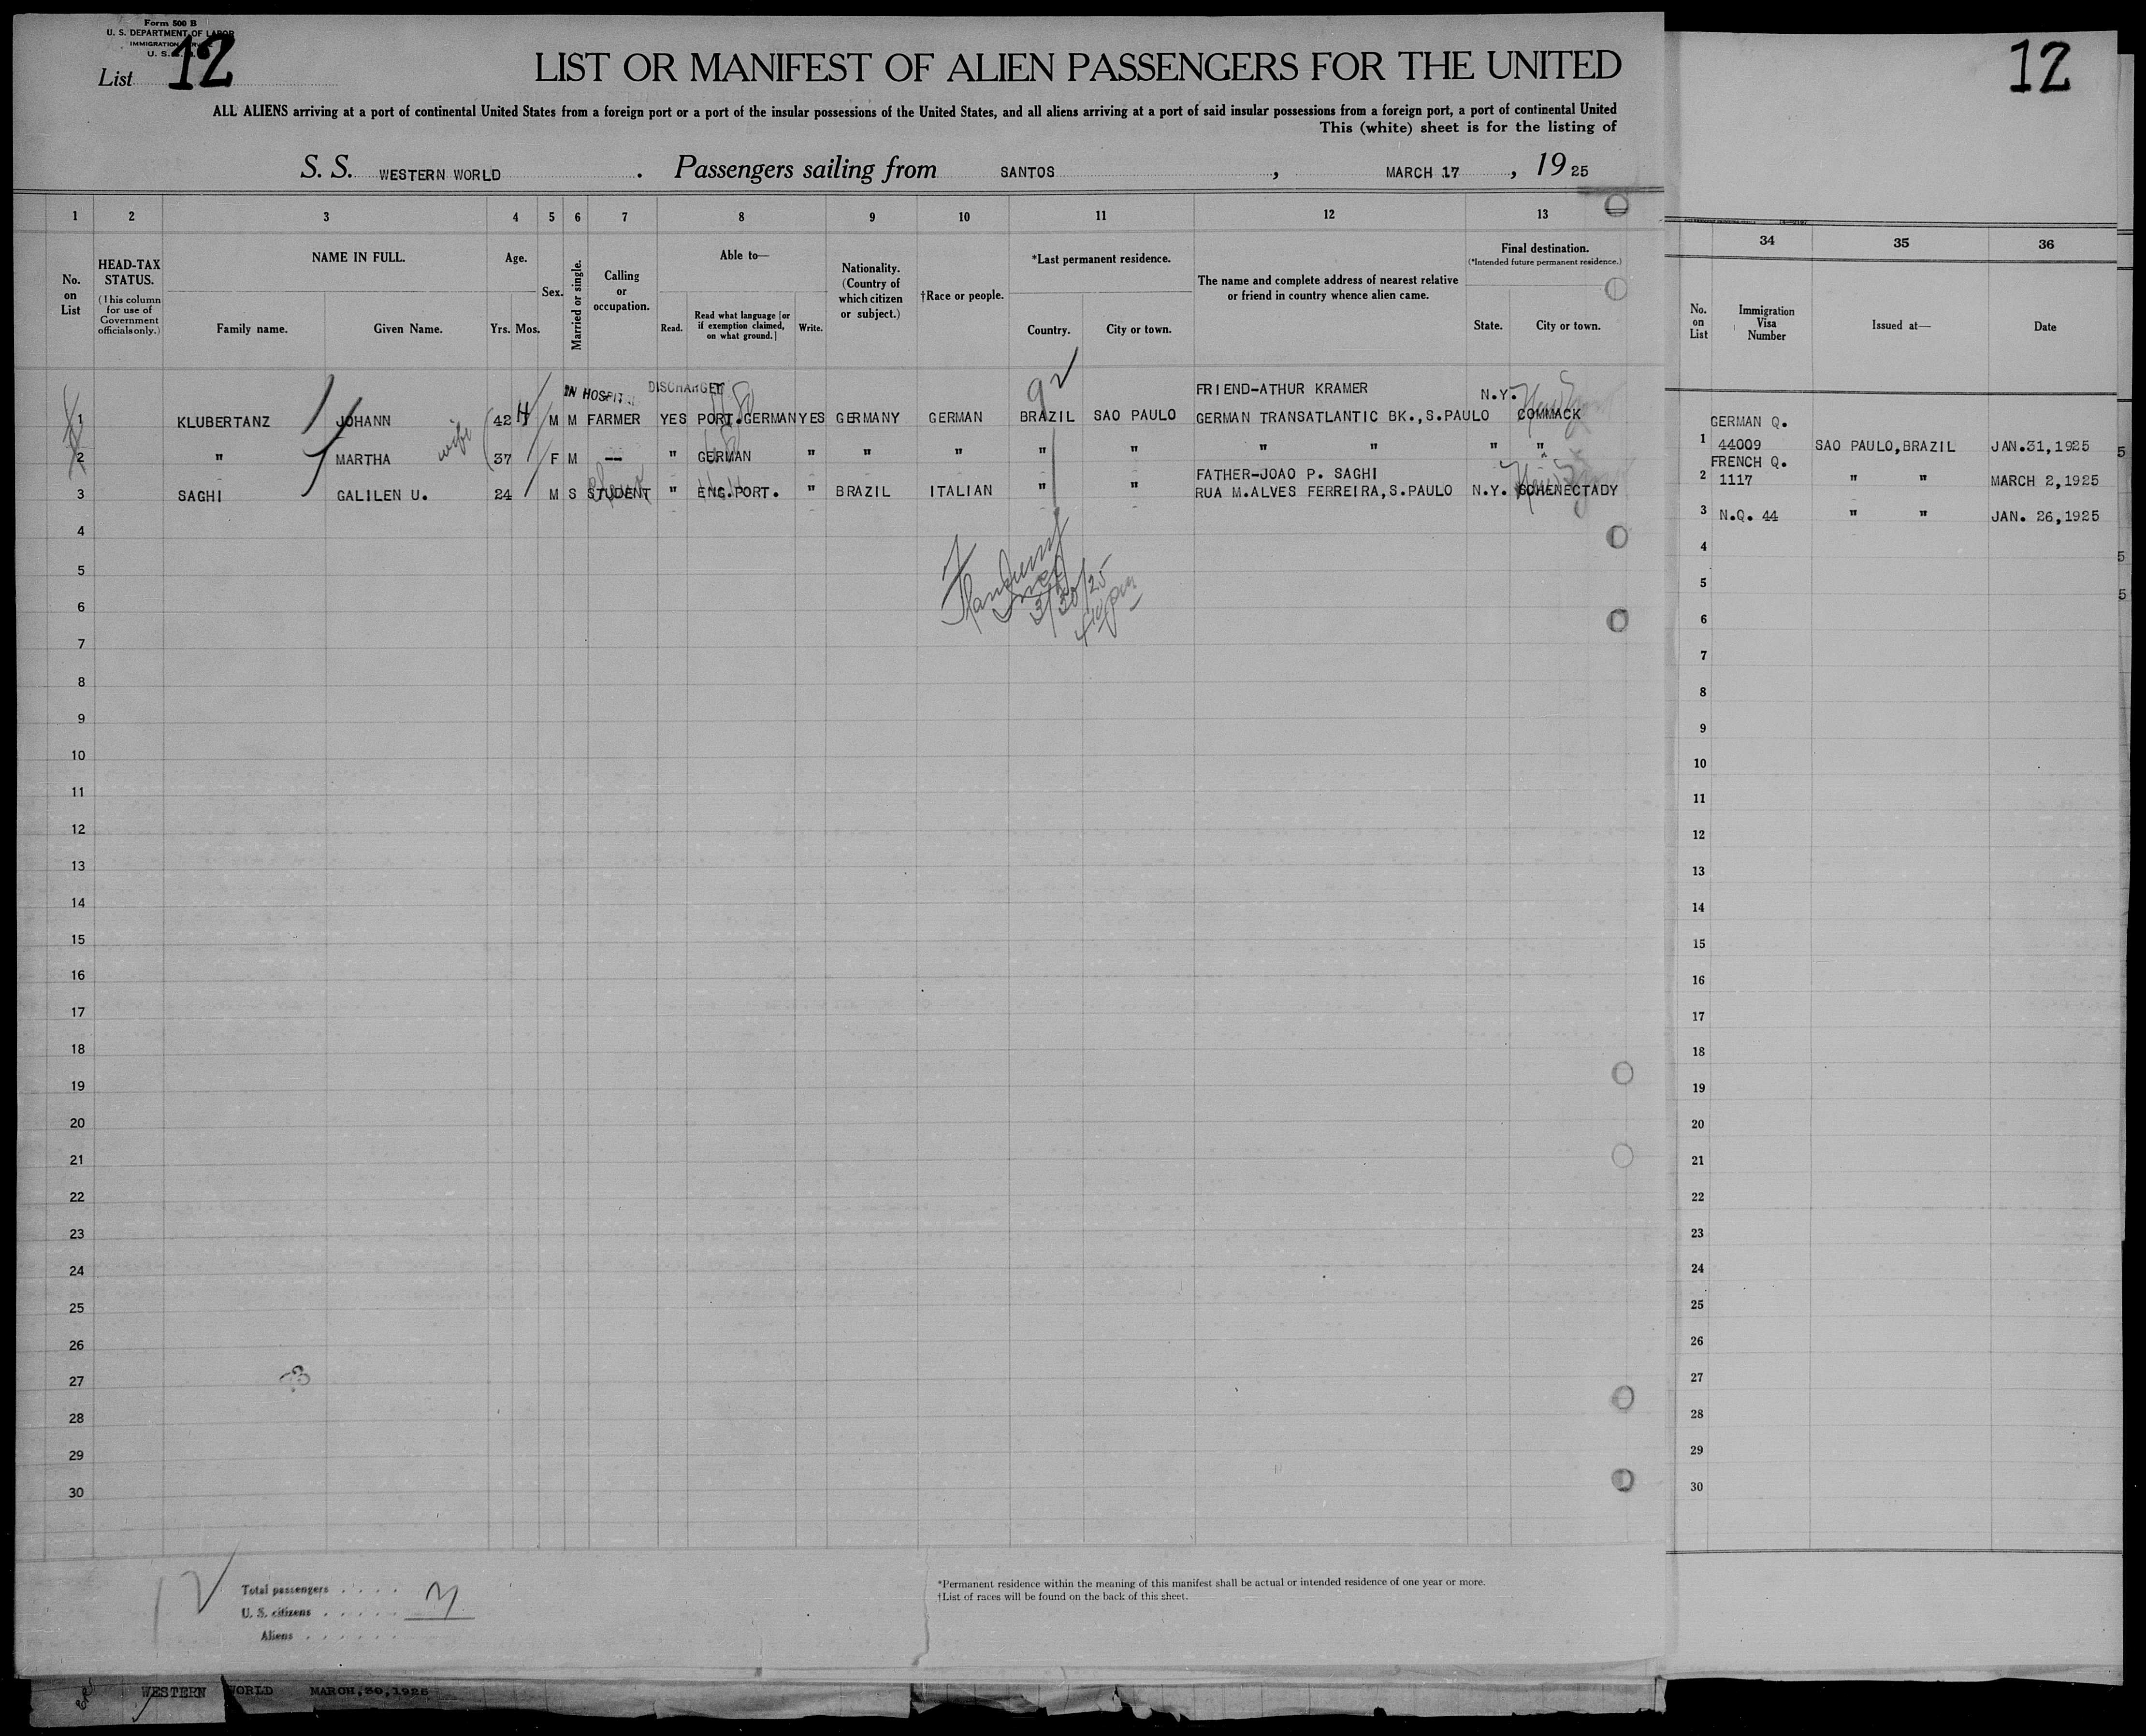 Form 500 B
U. S. DEPARTMENT OF LABOR
IMMIGRATION
U. S.
List 12
LIST OR MANIFEST OF ALIEN PASSENGERS FOR THE UNITED
ALL ALIENS arriving at a port of continental United States from a foreign port or a port of the insular possessions of the United States, and all aliens arriving at a port of said insular possessions from a foreign port, a port of continental United
This (white) sheet is for the listing of
S. S. WESTERN WORLD . Passengers sailing from SANTOS , MARCH 17 , 19 25
1 2 3 4 5 6 7 8 9 10 11 12 13
No. on List
HEAD-TAX STATUS.
(This column for use of Government officials only.)
NAME IN FULL.
Family name. Given Name.
Age.
Yrs. Mos.
Sex.
Married or single.
Calling or occupation.
Able to—
Read. Read what language [or if exemption claimed, on what ground.] Write.
Nationality. (Country of which citizen or subject.)
†Race or people.
*Last permanent residence.
Country. City or town.
The name and complete address of nearest relative or friend in country whence alien came.
Final destination.
(*Intended future permanent residence.)
State. City or town.
IN HOSPIT DISCHARGED
92
FRIEND-ATHUR KRAMER N.Y.
1 KLUBERTANZ JOHANN 42 4 M M FARMER YES PORT.GERMAN YES GERMANY GERMAN BRAZIL SAO PAULO GERMAN TRANSATLANTIC BK.,S.PAULO COMMACK
2 " MARTHA wife 37 F M -- " GERMAN " " " " " " " " "
FATHER-JOAO P. SAGHI
3 SAGHI GALILEN U. 24 M S STUDENT " ENG.PORT. " BRAZIL ITALIAN " " RUA M.ALVES FERREIRA,S.PAULO N.Y. SCHENECTADY
3/30/25
4
5
6
7
8
9
10
11
12
13
14
15
16
17
18
19
20
21
22
23
24
25
26
27
28
29
30
Total passengers
U. S. citizens
Aliens
3
*Permanent residence within the meaning of this manifest shall be actual or intended residence of one year or more.
†List of races will be found on the back of this sheet.
WESTERN WORLD MARCH,30,1925
12
34 35 36
No. on List
Immigration Visa Number
Issued at—
Date
GERMAN Q.
1 44009 SAO PAULO,BRAZIL JAN.31,1925
FRENCH Q.
2 1117 " " MARCH 2,1925
3 N.Q. 44 " " JAN. 26,1925
4
5
6
7
8
9
10
11
12
13
14
15
16
17
18
19
20
21
22
23
24
25
26
27
28
29
30
5
5
5